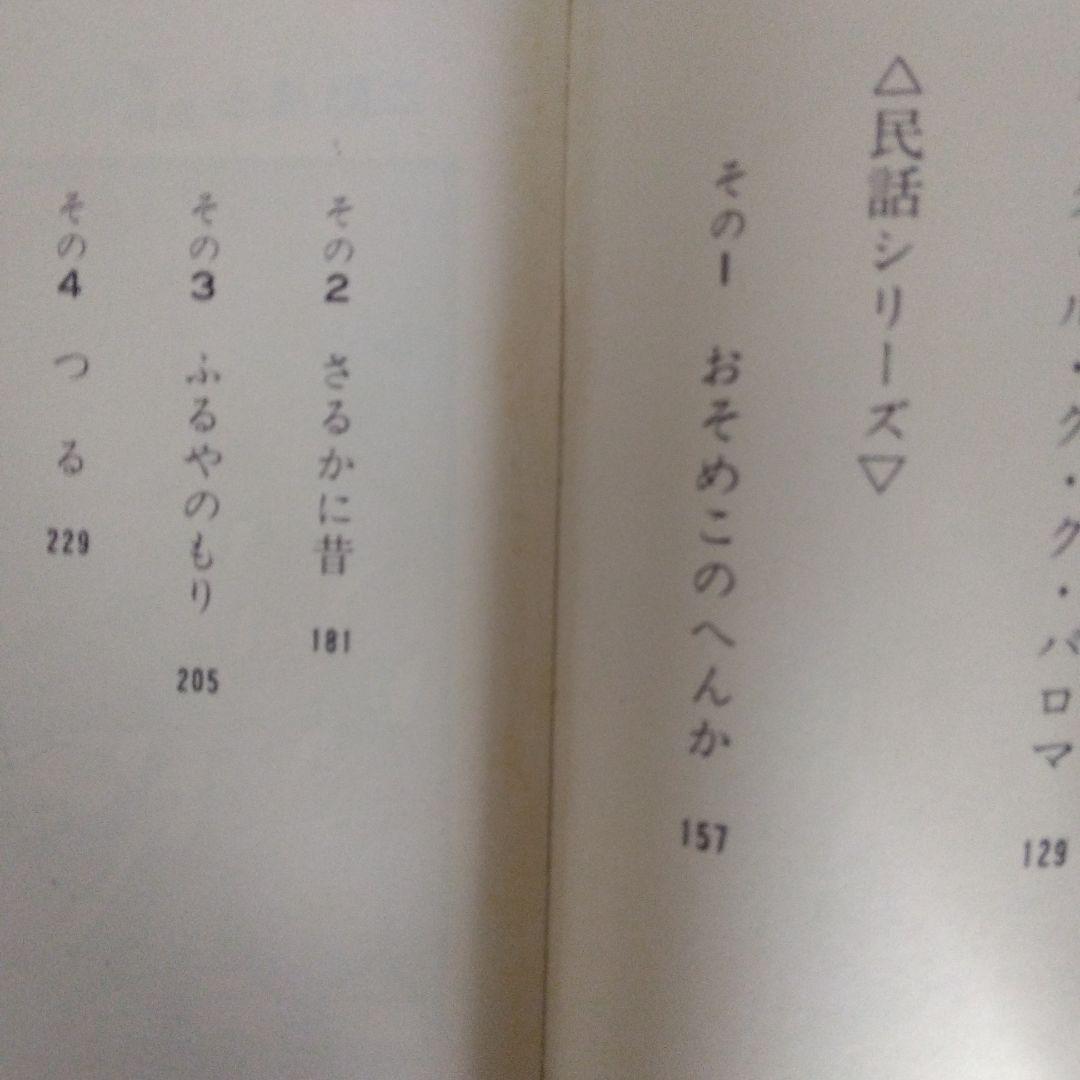 ル・グ・グ・バロマ 129
△民話シリーズ▽
その1 おそめこのへんか 157
その2 さるかに昔 181
その3 ふるやのもり 205
その4 つる 229